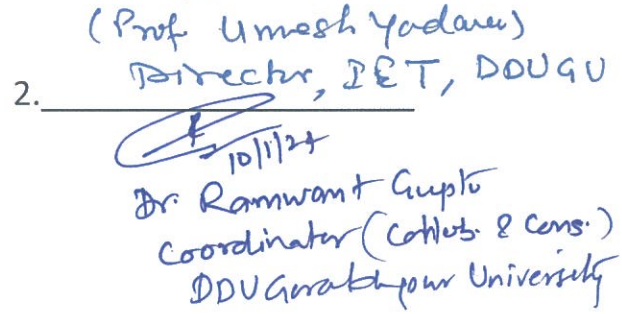 (Prof Umesh Yadava)
Director, IET, DDUGU
2.
10/1/24
Dr. Ramwant Gupta
Coordinator (Collab. & Cons.)
DDU Gorakhpur University